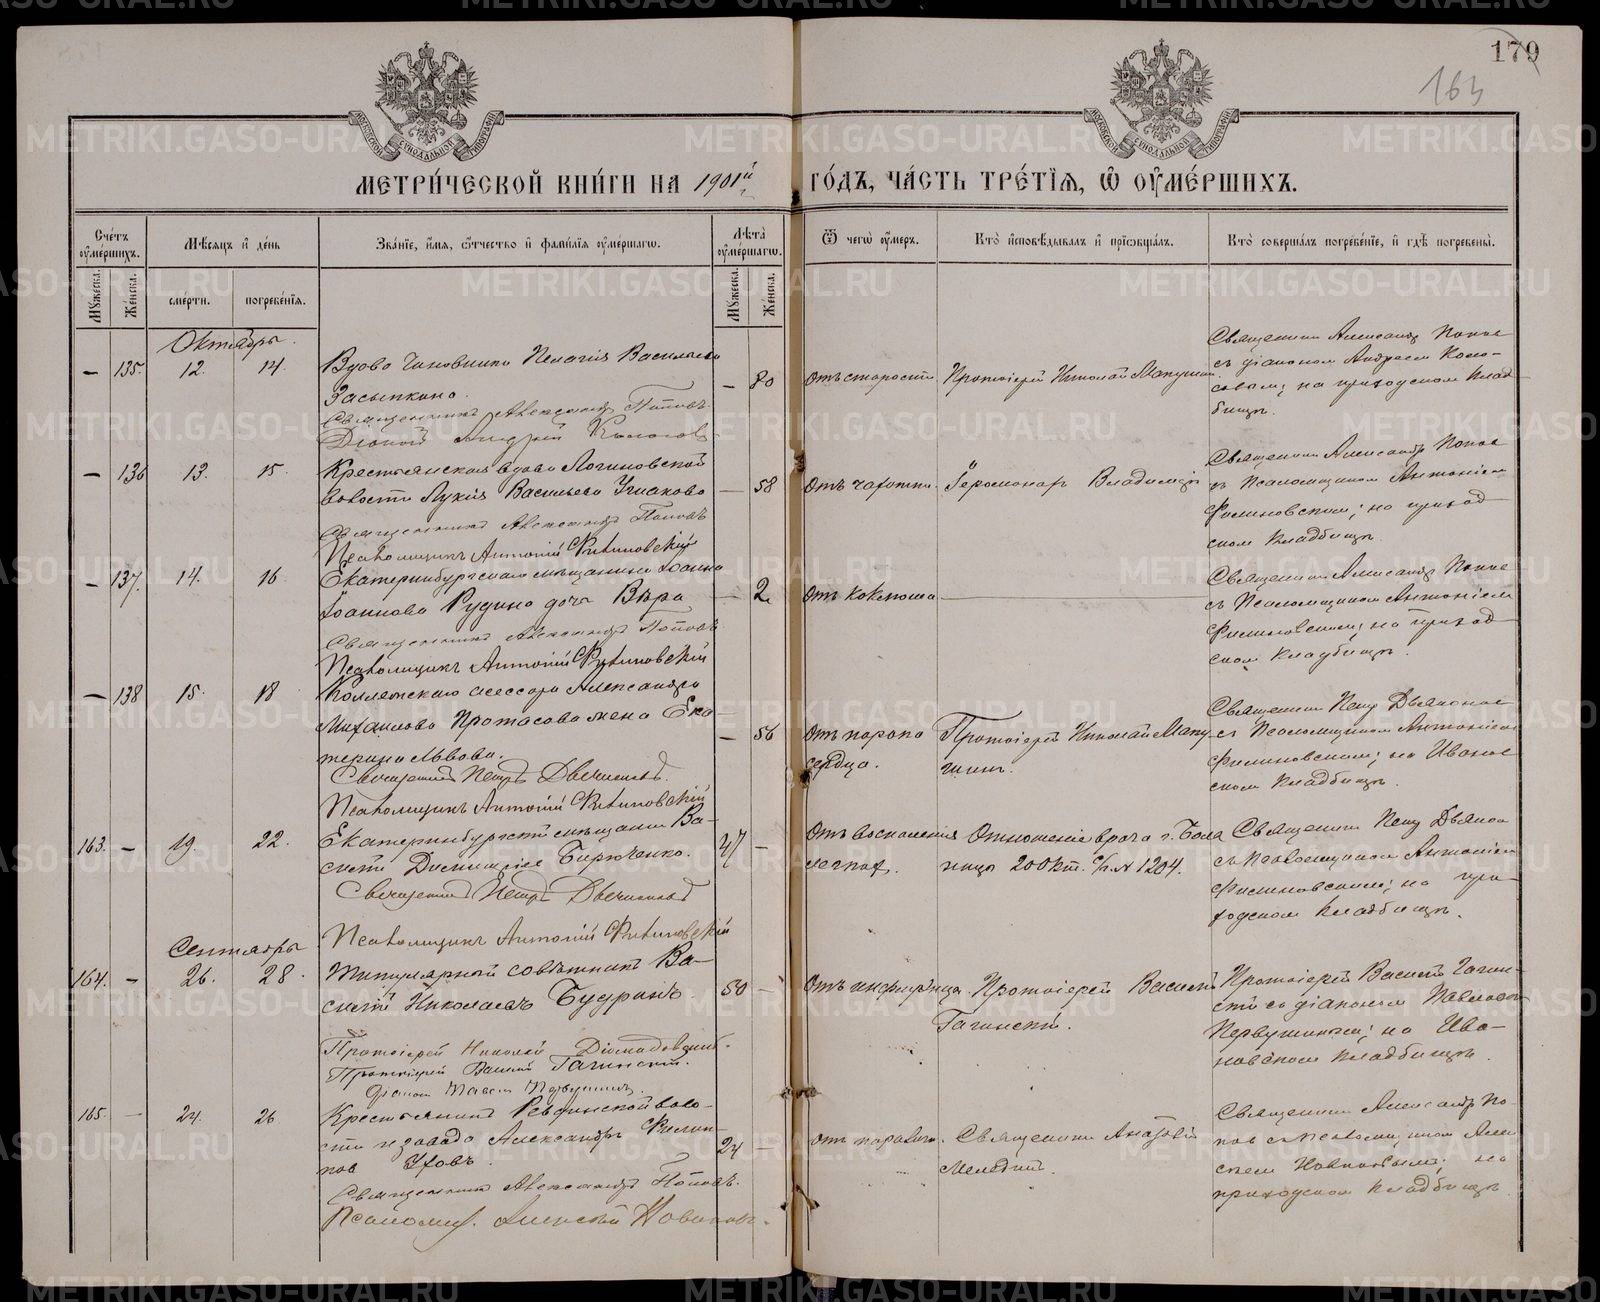 179
163
МЕТРИ́ЧЕСКОЙ КНИ́ГИ НА 1901й ГО́ДЪ, ЧА́СТЬ ТРЕ́ТІѦ, Ѽ ОУ҆МЕ́РШИХЪ.
Сче́тъ оу҆ме́ршихъ.
Мꙋжеска.
Же́нска.
Мѣ́сѧцъ и҆ де́нь
сме́рти.
погребе́нїѧ.
Зва́нїе, и҆́мѧ, ѻ҆́тчество и҆ фами́лїѧ оу҆ме́ршагѡ.
Лѣ́та оу҆ме́ршагѡ.
Мꙋжеска.
Же́нска.
Ѿ чегѡ̀ оу҆́меръ.
Кто̀ и҆сповѣ́дывалъ и҆ прїѡбща́лъ.
Кто̀ соверша́лъ погребе́нїе, и҆ гдѣ̀ погребены̀.
Октябрь.
— 135. 12. 14.
Вдова Чиновника Пелагія Васильева
Засыпкина.
Священникъ Александръ Поповъ.
Діаконъ Андрей
— 80
Отъ старости
Протоіерей Николай
Священникъ Александръ Попов
съ діакономъ Андреем Коло-
совым; на приходском клад
бищѣ.
— 136 13. 15.
Крестьянская вдова Логиновской
волости Лукія Васильева Ушакова
Священникъ Александръ Поповъ
Псаломщикъ Антоній Филиновскій
— 58
Отъ чахотки.
Іеромонах Владимір
Священник Александръ Попов
съ Псаломщиком Антоніем
Филиновским; на приход
ском кладбищѣ.
— 137. 14. 16.
Екатеринбургскаго мѣщанина Іоанна
Іоаннова Рудина дочь Вѣра
Священникъ Александръ Поповъ
Псаломщикъ Антоній Филиновскій
— 2
Отъ коклюша
Священник Александр Попов
съ Псаломщиком Антоніем
Филиновским; на приход
ском кладбищѣ.
— 138 15. 18
Коллежскаго ассесора Александра
Михаилова Протасова жена Ека-
терина Львова.
Священникъ Петръ
Псаломщикъ Антоній Филиновскій
— 56
Отъ порока
сердца.
Протоіерей Николай
Священник Петр
съ Псаломщиком Антоніем
Филиновским; на Иванов
ском кладбищѣ.
163. — 19. 22.
Екатеринбургскій мѣщанин Ва-
силій Бирюченко.
Священникъ Петръ
Псаломщикъ Антоній Филиновскій
47 —
Отъ воспаленія
легких.
Отношеніе врача г. Боль
ницы 200кт. с/г. № 1204.
Священник Петр
съ Псаломщиком Антоніем
Филиновским; на при-
ходском кладбищѣ.
Сентябрь
164. — 26. 28.
Титулярный совѣтникъ Ва-
силій Николаевъ Будринъ.
Протоіерей Николай
Протоіерей Василій Гагинскій.
Діакон Павел Первушинъ.
50 —
Протоіерей Василій
Гагинскій.
Протоіерей Василій Гагин-
скій съ діаконом Павлом
Первушиным; на Ива-
новском кладбищѣ.
165. — 24. 26
Крестьянинъ Ревдинской воло-
сти и завода Александръ Филип-
пов
Священникъ Александръ Поповъ.
Псаломщ. Алексѣй Новиковъ.
24 —
Священник
Священник Александръ По-
пов съ псаломщиком Алек
сѣем Новиковым; на
приходском кладбищѣ
METRIKI.GASO-URAL.RU